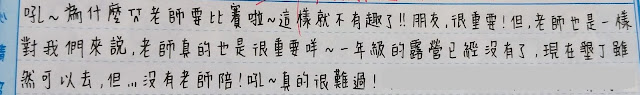 吼~為什麼ㄞ老師要比賽啦~這樣就不有趣了!!朋友,很重要!但,老師也是一樣
對我們來說,老師真的也是很重要咩~一年級的露營已經沒有了,現在墾丁雖
然可以去,但...沒有老師陪!吼~真的很難過!